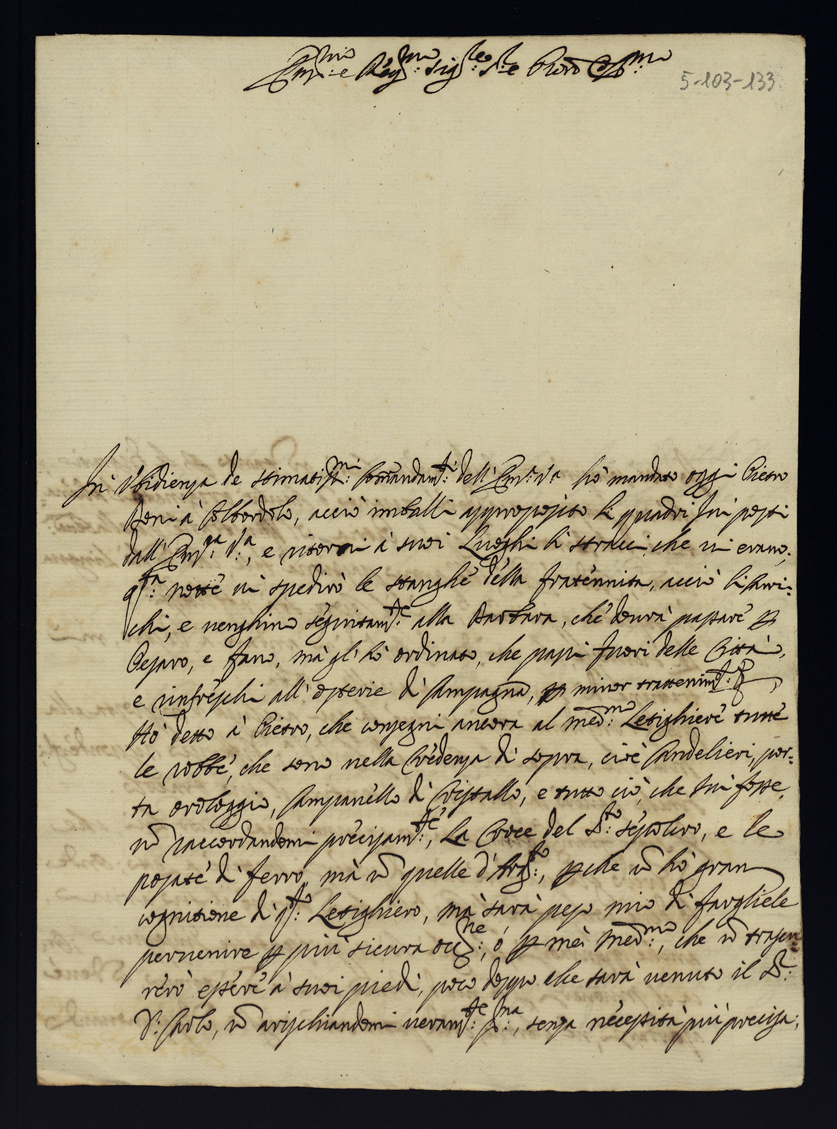 Em:mo e Rev:mo Sig:re S:re e Prone Col:mo
5-103-133
In Ubidienza de stimatiss:mi Comandam:ti dell'Em:a V:a hò mandato oggi Pietro
Beni à Colbordolo, acciò imballi appropojito li quadri ivi posti
dall'Em:a V:a, e ritorni à suoi Luoghi li stracci, che vi erano,
q:ta notte vi spedirò le stanghe della fratennita, acciò li
chi, e venghino seguitam:te alla Barbara, che dourà passare p
Pesaro, e fano, mà gl'hò ordinato, che passi fuori delle Città,
e rinfreschi all'osterie di Campagna, p minor trattenim:to
Hò detto à Pietro, che consegni ancora al med:mo Letighiere tutte
le robbe, che sono nella Credenza di sopra, cioè Candelieri, por-
ta orologgio, Campanello di Cristallo, e tutto ciò, che ivi fosse,
nō raccordandomi precisam:te, La Croce del S:to Sepolcro, e le
posate di ferro, mà nō quelle d'Arg:to, pche nō hò gran
cognitione di q:to Letighiero, mà sarà peso mio di fargliele
pervenire p più sicura occ:ne, ò p me med:mo, che nō trascu-
rerò essere à suoi piedi, poco doppo che sarà venuto il S:r
D: Carlo, nō arischiandomi veram:te p:ma, senza necessità più precisa,